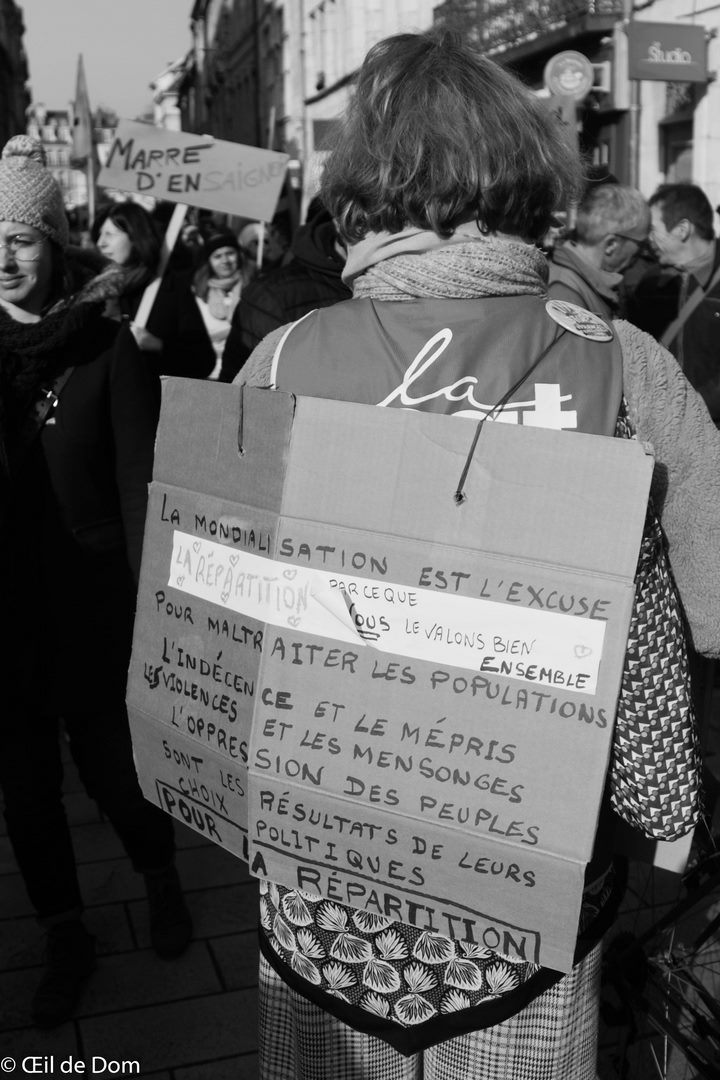 Studio
MARRE
D'ENSAIGNER
la
LA MONDIALISATION EST L'EXCUSE
LA RÉPARTITION PARCE QUE
NOUS LE VALONS BIEN
ENSEMBLE
POUR MALTRAITER LES POPULATIONS
L'INDÉCENCE ET LE MÉPRIS
LES VIOLENCES ET LES MENSONGES
L'OPPRESSION DES PEUPLES
SONT LES RÉSULTATS DE LEURS
CHOIX POLITIQUES
POUR LA RÉPARTITION
© Œil de Dom